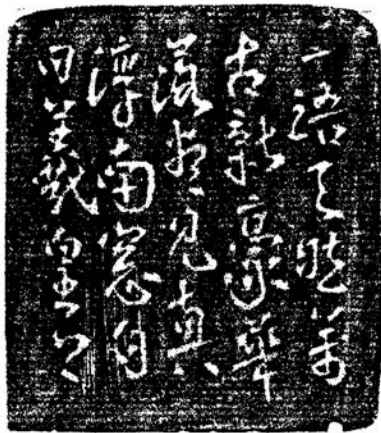 一語天然萬
古新豪華
落盡見真
淳南窗白
日羲皇上